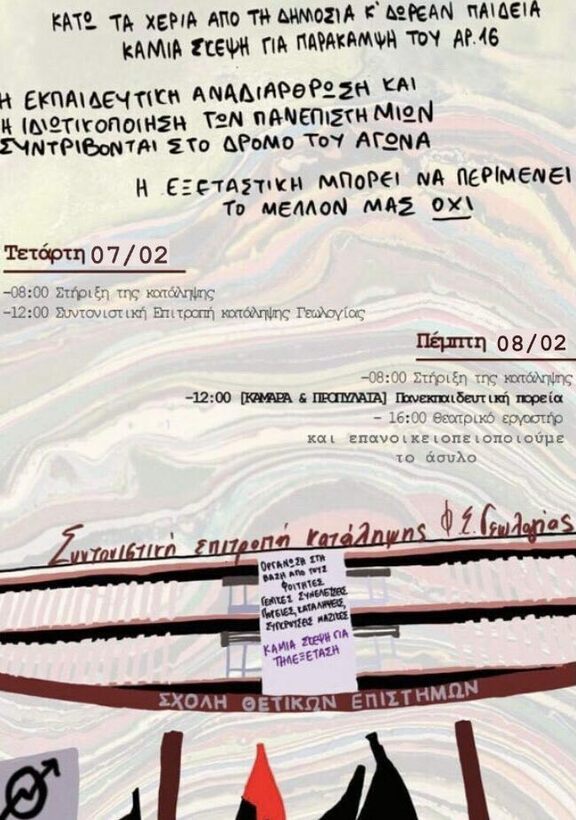 ΚΑΤΩ ΤΑ ΧΕΡΙΑ ΑΠΟ ΤΗ ΔΗΜΟΣΙΑ Κ' ΔΩΡΕΑΝ ΠΑΙΔΕΙΑ
ΚΑΜΙΑ ΣΚΕΨΗ ΓΙΑ ΠΑΡΑΚΑΜΨΗ ΤΟΥ ΑΡ.16
Η ΕΚΠΑΙΔΕΥΤΙΚΗ ΑΝΑΔΙΑΡΘΡΩΣΗ ΚΑΙ
Η ΙΔΙΩΤΙΚΟΠΟΙΗΣΗ ΤΩΝ ΠΑΝΕΠΙΣΤΗΜΙΩΝ
ΣΥΝΤΡΙΒΟΝΤΑΙ ΣΤΟ ΔΡΟΜΟ ΤΟΥ ΑΓΩΝΑ
Η ΕΞΕΤΑΣΤΙΚΗ ΜΠΟΡΕΙ ΝΑ ΠΕΡΙΜΕΝΕΙ
ΤΟ ΜΕΛΛΟΝ ΜΑΣ ΟΧΙ
Τετάρτη 07/02
-08:00 Στήριξη της κατάληψης
-12:00 Συντονιστική Επιτροπή κατάληψης Γεωλογίας
Πέμπτη 08/02
-08:00 Στήριξη της κατάληψης
-12:00 [ΚΑΜΑΡΑ & ΠΡΟΠΥΛΑΤΑ] Πανεκπαιδευτική πορεία
- 16:00 Θεατρικό εργαστήρ
και επανοικειοπειοποιούμε
το άσυλο
Συντονιστική επιτροπή κατάληψης Φ.Σ. Γεωλογίας
ΟΡΓΑΝΩΣΗ ΣΤΗ
ΒΑΣΗ ΑΠΟ ΤΟΥΣ
ΦΟΙΤΗΤΕΣ
ΓΕΝΙΚΕΣ ΣΥΝΕΛΕΥΣΕΙΣ
ΠΟΡΕΙΕΣ, ΚΑΤΑΛΗΨΕΙΣ,
ΣΥΓΚΡΟΥΣΕΙΣ ΜΑΖΙΚΕΣ
ΚΑΜΙΑ ΣΚΕΨΗ ΓΙΑ
ΤΗΛΕΞΕΤΑΣΗ
ΣΧΟΛΗ ΘΕΤΙΚΩΝ ΕΠΙΣΤΗΜΩΝ